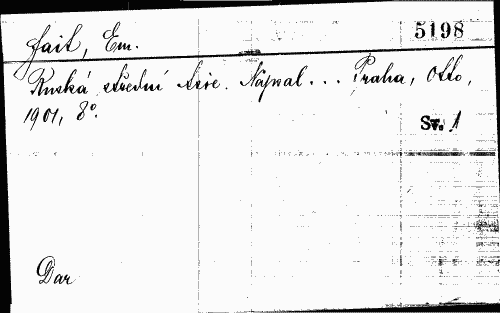 5198
Fait, Em.
Ruská střední Asie. Napsal... Praha, Otto,
1901, 8°.
Sv. 1
Dar